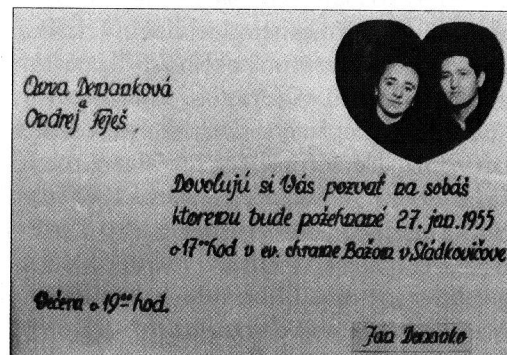 Anna Demanková
a
Ondrej Feješ,
Dovoľujú si Vás pozvať na sobáš
ktoremu bude požehnané 27. jan. 1955
o 17⁰⁰ hod v ev. chrame Božom v Sládkovičove
Večera o 19⁰⁰ hod.
Jan